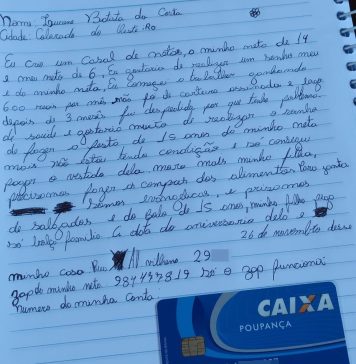 Nome: Luciene Batista da Costa
Cidade: Colorado do Oeste-Ro
Eu Crio um Casal de netos, a minha neta de 14
e meu neto de 6, Eu gostaria de realizar um sonho meu
e da minha neta, Eu comecei a trabalhar ganhando
600 reais por mês não foi de carteira assinada e logo
depois de 3 meses fui despedida, por que tenho problema
de saúde e gostaria muito de realizar o sonho
de fazer a festa de 15 anos da minha neta
mais não estou tendo condição e só consegui
pagar o vestido dela, mora mais minha filha,
precisamos fazer as compras dos alimentos. Para janta
Somos evangélicas, e prisamos
de salgados e do bolo de 15 anos, minha filha
só bolça familia. a data do aniversario dela é
26 de novembro desse
minha casa Rua vilhena 29
zap da minha neta 984777819 só o zap funciona
numero da minha Conta.
CAIXA
POUPANÇA